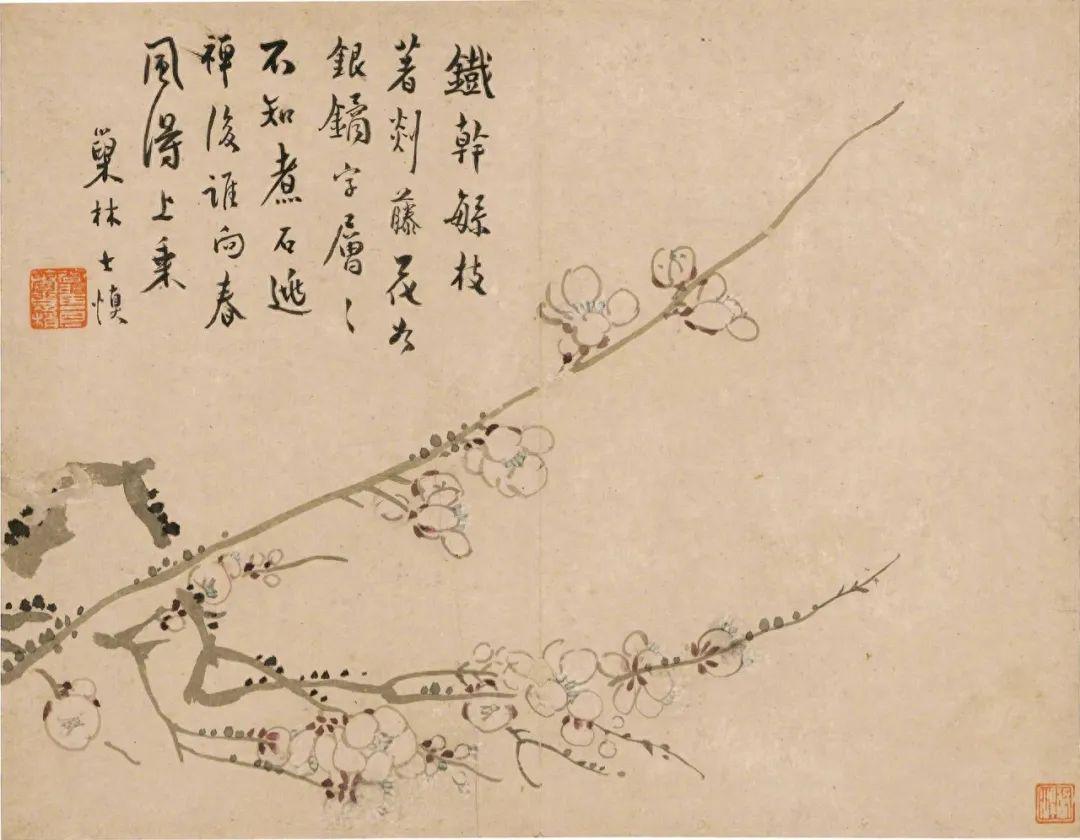 鐵幹緐枝
著剡藤花為
銀鐍字層〻
不知煮石逃
禪後誰向春
風得上乘
巢林士慎